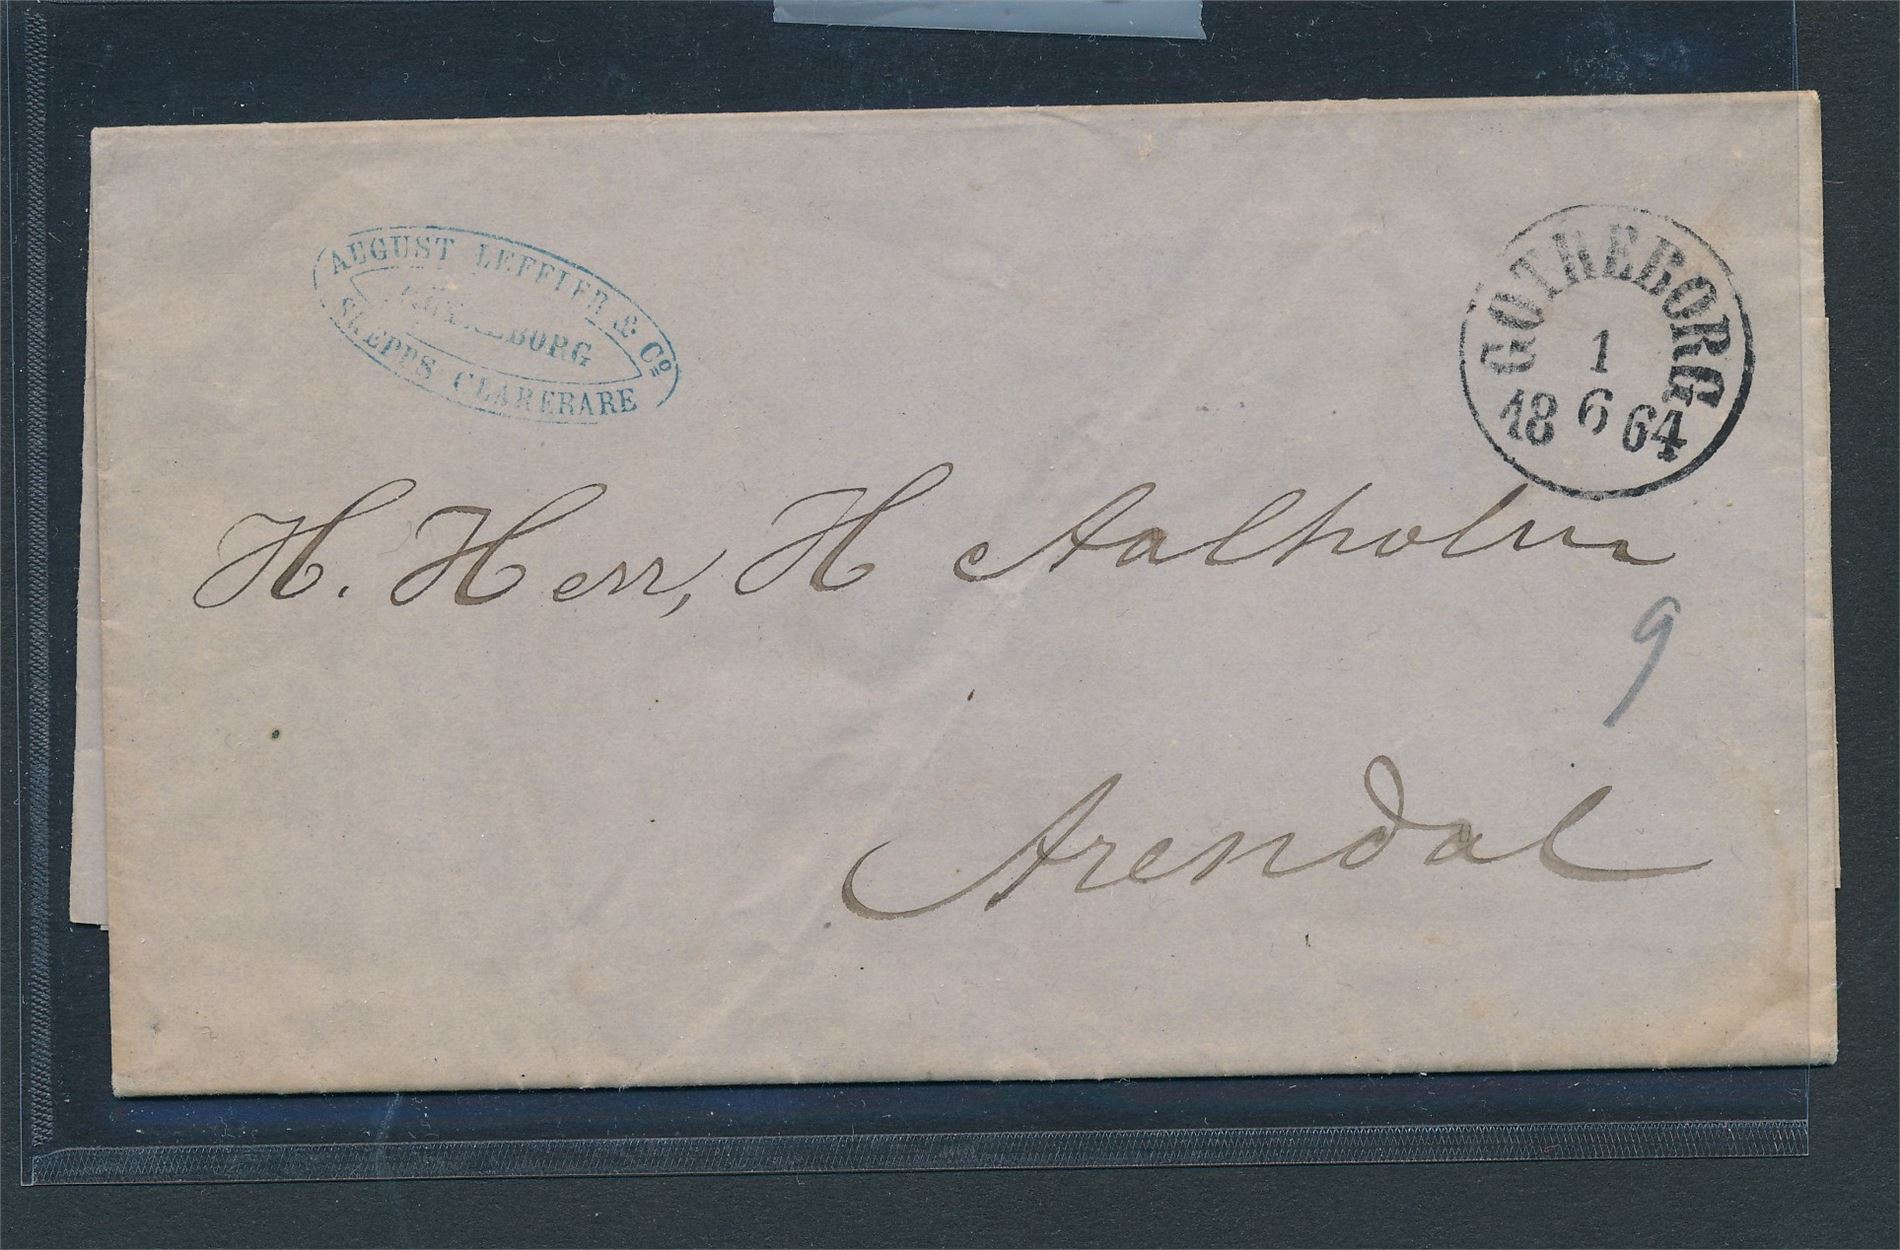 AUGUST LEFFLER & Co
GÖTHEBORG
SKEPPS CLARERARE
GÖTHEBORG
1
18 6 64
H. Herr, H Aalholm
9
Arendal